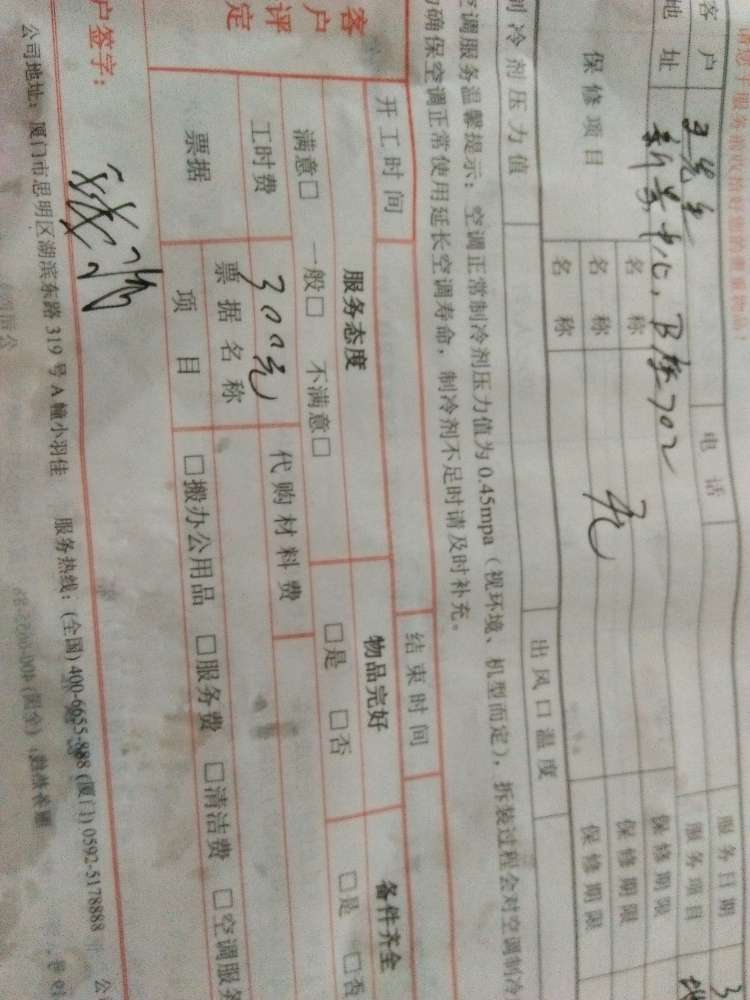 客户 王先生 电话 服务日期
地址 新景中心，B栋702 服务项目
保修项目 名称 保修期限
名称 无 保修期限
名称 保修期限
制冷剂压力值 出风口温度
空调服务温馨提示：空调正常制冷剂压力值为0.45mpa（视环境、机型而定），拆装过程会对空调制冷
确保空调正常使用延长空调寿命，制冷剂不足时请及时补充。
开工时间 结束时间
客户评定 服务态度 物品完好 备件齐全
满意□ 一般□ 不满意□ □是 □否 □是 □否
工时费 300元 代购材料费
票据 票据名称
项目 □搬办公用品 □服务费 □清洁费 □空调服务
户签字：
公司地址：厦门市思明区湖滨东路319号A幢小羽佳 服务热线：(全国)400-6655-888 (厦门)0592-5178888